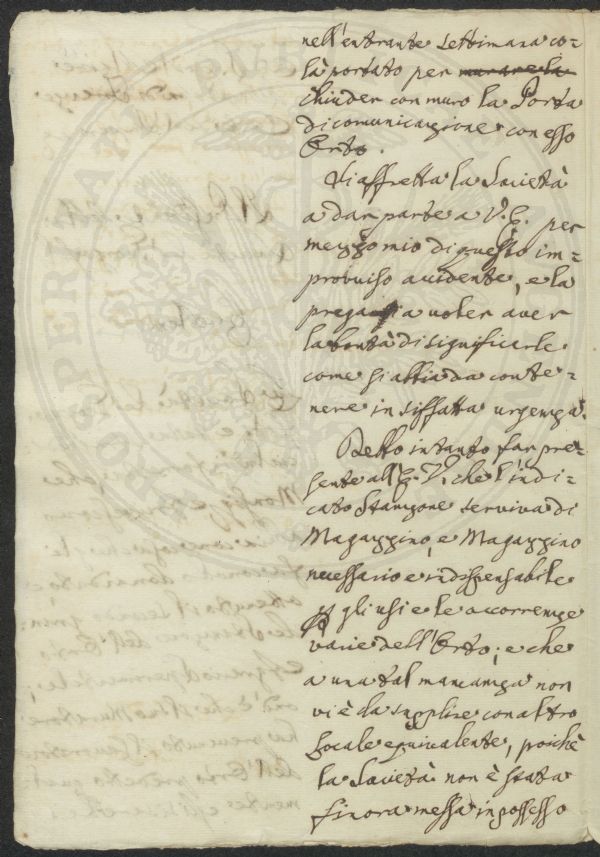 nell'entrante settimana co=
là portato per murare la
chiuder con muro la Porta
di comunicazione con esso
Orto.
Si affretta la Società
a dar parte a V. E. per
mezzo mio di questo im=
provviso accidente, e la
prega a voler aver
la bontà di significarle
come si abbia da conte=
nere in siffatta urgenza.
Debbo intanto far pre=
sente all'E. V. che l'indi=
cato Stanzone serviva di
Magazzino, e Magazzino
necessario e indispensabile
p gli usi e le occorrenze
varie dell'Orto; e che
a una tal mancanza non
vi è da supplire con altro
Locale equivalente, poichè
la Società non è stata
finora messa in possesso